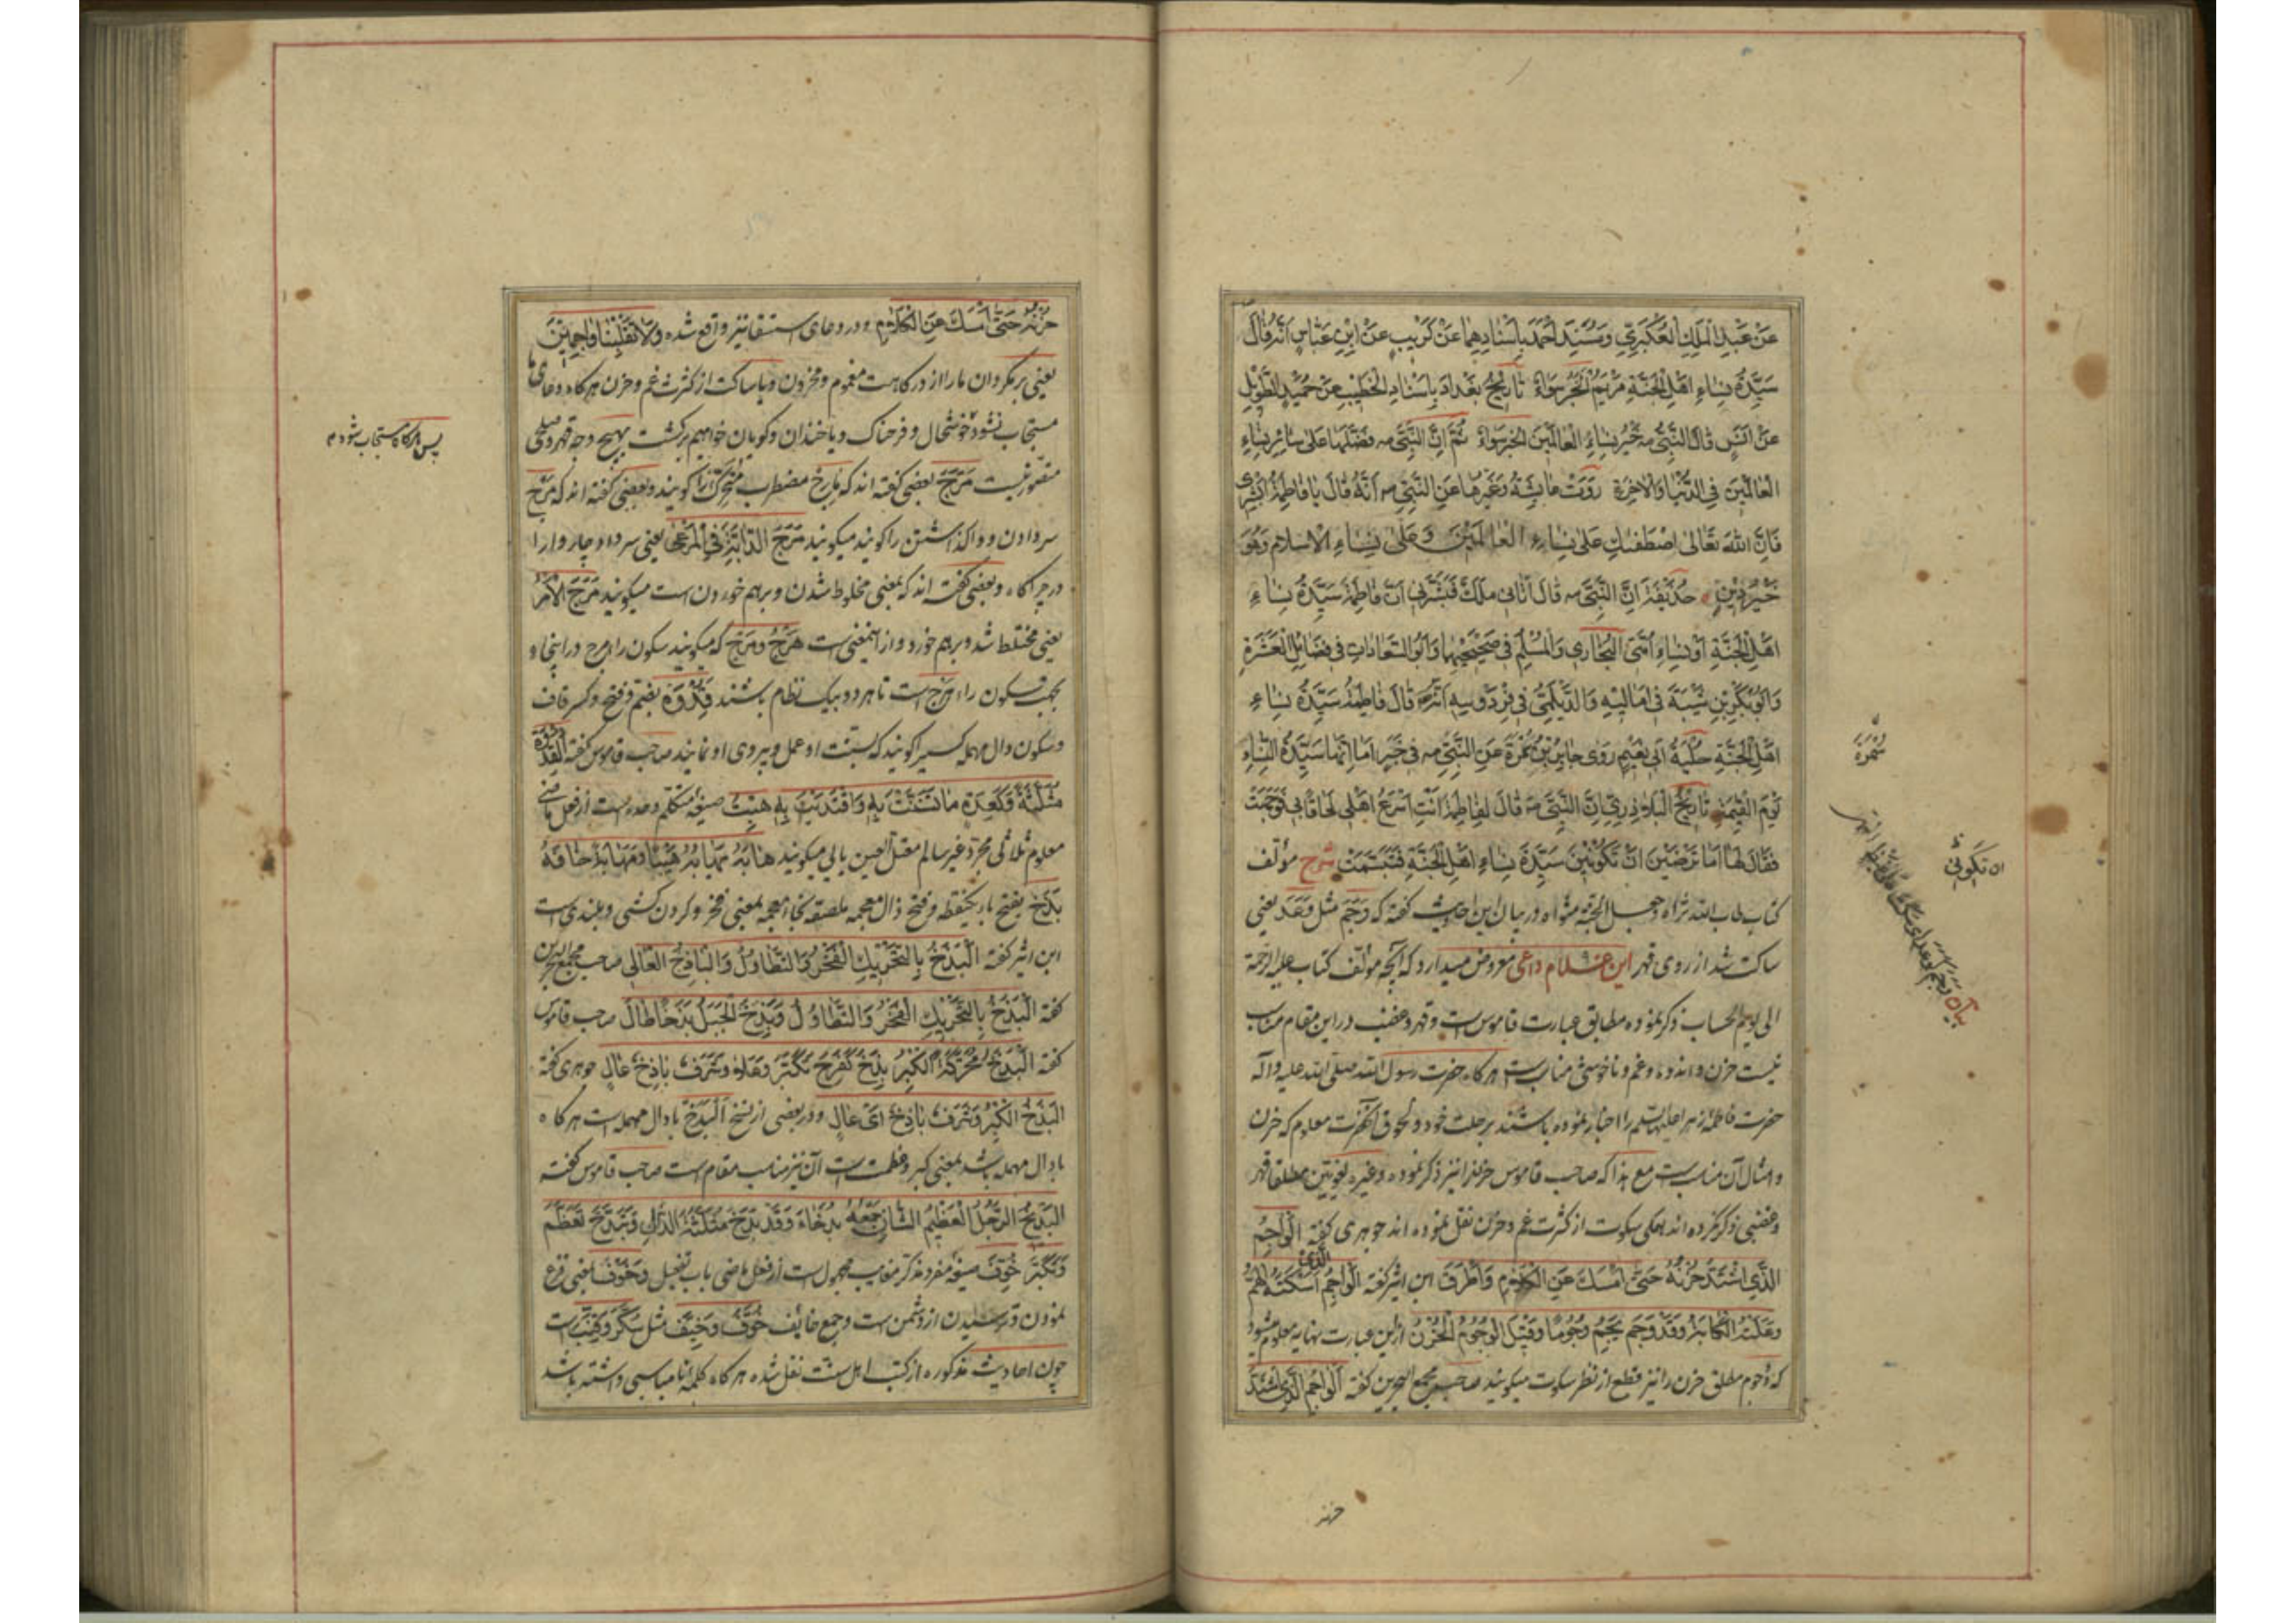 عَنْ عَبْدِ الْمَلِكِ الْعُكْبَرِيِّ وَمُسْنَدِ اَحْمَدَ بِاسْنَادِهِمَا عَنْ كُرَيْبٍ عَنْ اِبْنِ عَبَّاسٍ اَنَّهُ قَالَ
سَيِّدَةُ نِسَاءِ اَهْلِ الْجَنَّةِ مَرْيَمُ الْخَبَرَ سَوَاءً تَارِيخُ بَغْدَادَ بِاِسْنَادِ الْخَطِيبِ عَنْ حُمَيْدِ الطَّوِيلِ
عَنْ اَنَسٍ قَالَ النَّبِيُّ صه خَيْرُ نِسَاءِ الْعَالَمِينَ الْخَبَرَ سَوَاءً ثُمَّ اِنَّ النَّبِيَّ صه فَضَّلَهَا عَلٰى سَائِرِ نِسَاءِ
الْعَالَمِينَ فِي الدُّنْيَا وَالْاٰخِرَةِ رَوَتْ عَائِشَةُ وَغَيْرُهَا عَنِ النَّبِيِّ صه اَنَّهُ قَالَ يَا فَاطِمَةُ اَبْشِرِي
فَاِنَّ اللهَ تَعَالٰى اصْطَفٰىكِ عَلٰى نِسَاءِ الْعَالَمِينَ وَعَلٰى نِسَاءِ الْاِسْلَامِ وَهُوَ
خَيْرُ دِينٍ حُذَيْفَةَ اَنَّ النَّبِيَّ صه قَالَ اَتَانِى مَلَكٌ فَبَشَّرَنِى اَنَّ فَاطِمَةَ سَيِّدَةُ نِسَاءِ
اَهْلِ الْجَنَّةِ اَوْ نِسَاءِ اُمَّتِى الْبُخَارِى وَالْمُسْلِمُ فِى صَحِيحَيْهِمَا وَاَبُو السَّعَادَاتِ فِى فَضَائِلِ الْعَشَرَةِ
وَاَبُو بَكْرِ بْنِ شَيْبَةَ فِى اَمَالِيهِ وَالدَّيْلَمِىُّ فِى فِرْدَوْسِهِ اَنَّهُ صه قَالَ فَاطِمَةُ سَيِّدَةُ نِسَاءِ
اَهْلِ الْجَنَّةِ حُلْيَةُ اَبِى نُعَيْمٍ رَوٰى جَابِرُ بْنُ سَمُرَةَ عَنِ النَّبِىِّ صه فِى خَبَرٍ اَمَا اِنَّهَا سَيِّدَةُ النِّسَاءِ
يَوْمَ الْقِيٰمَةِ تَارِيخُ الْبَلَاذُرِىِّ اِنَّ النَّبِىَّ صه قَالَ لِفَاطِمَةَ اَنْتِ اَسْرَعُ اَهْلِى لَحَاقًا بِى فَوَجَمَتْ
فَقَالَ لَهَا اَمَا تَرْضَيْنَ اَنْ تَكُونِينَ سَيِّدَةَ نِسَاءِ اَهْلِ الْجَنَّةِ فَتَبَسَّمَتْ شرح مؤلف
كتاب طاب الله ثراه وجعل الجنة مثواه در بيان اين احاديث گفته كه وَجَمَ مثل وَعَدَ يعنى
ساكت شد از روى قهر اين غلام داعى معروض ميدارد كه آنچه مؤلف كتاب عليه الرحمة
الى يوم الحساب ذكر نموده مطابق عبارت قاموس است و قهر و غضب در اين مقام مناسب
نيست حزن و اندوه و غم و ناخوشى مناسب است هر كاه حضرت رسول الله صلى الله عليه وآله
حضرت فاطمه زهرا عليها السلام را اخبار نموده باشند برحلت خود و لحوق آنحضرت معلوم كه حزن
و امثال آن مناسب است مع هذا كه صاحب قاموس حزن را نيز ذكر نموده و غيره لغويين مطلقا قهر
وغضبى ذكر نكرده اند همكى سكوت از كثرت غم و حزن نقل نموده اند جوهرى گفته اَلْوَاجِمُ
الَّذِى اشْتَدَّ حُزْنُهُ حَتّٰى اَمْسَكَ عَنِ الْكَلَامِ وَاَطْرَقَ ابن اثير گفته اَلْوَاجِمُ الَّذِى اَسْكَتَهُ الْهَمُّ
وَعَلَتْهُ الْكَآبَةُ وَقَدْ وَجَمَ يَجِمُ وُجُومًا وَقِيلَ الْوُجُومُ الْحُزْنُ از اين عبارت نهايه معلوم ميشود
كه وُجوم مطلق حزن را نيز قطع از نظر سكوت ميگويند صاحب مجمع البحرين گفته اَلْوَاجِمُ الَّذِى اشْتَدَّ
سَمُرَة
ان تكونى
حزنه
حُزْنُهُ حَتّٰى اَمْسَكَ عَنِ الْكَلَامِ و در دعاى استسقا نيز واقع شده وَلَا تَقْلِبْنَا وَاجِمِينَ
يعنى برمگردان ما را از درگاهت مغموم و محزون و يا ساكت از كثرت غم و حزن هر كاه دعاى ما
مستجاب نشود خوشحال و فرحناك و يا خندان و گويان خواهيم برگشت بهيچ وجه قهر و
متصور نيست مَرَجَ بعضى گفته اند كه مارج مضطرب متحرك را گويند و بعضى گفته اند كه مَرَجَ
سر دادن و واگذاشتن را گويند ميگويند مَرَجَ الدَّابَّةَ فِى الْمَرْعٰى يعنى سر داد چاروا را
در چراگاه و بعضى گفته اند كه بمعنى مخلوط شدن و برهم خوردن است ميگويند مَرَجَ الْاَمْرُ
يعنى مختلط شد و برهم خورد و از آنمعنى است هَرْج و مَرْج كه ميگويند سكون را مرج در اينجا و
بجهت سكون را هرج است تا هر دو بيك نظام باشند قِدْوَة بضم و فتح و كسر قاف
و سكون دال مهمله كسيرا گويند كه بسنت او عمل و پيروى او نمايند صاحب قاموس گفته اَلْقِدْوَةُ
مُثَلَّثَةً وَكَعِدَةٍ مَا تَسَنَّنْتَ بِهِ وَاقْتَدَيْتَ بِهِ هِبْتُ صيغهٔ متكلم وحده است از فعل ماضى
معلوم ثلاثى مجرد غير سالم معتل العين يائى ميگويند هَابَهُ يَهَابُهُ هَيْبًا وَمَهَابَةً خَافَهُ
بَذَخ بفتح باء يكنقطه و فتح ذال معجمه ملصقه بخاء معجمه بمعنى فخر و گردن كشى و بلندى است
ابن اثير گفته اَلْبَذَخُ بِالتَّحْرِيكِ الْفَخْرُ وَالتَّطَاوُلُ وَالْبَاذِخُ الْعَالِى صاحب مجمع البحرين
گفته اَلْبَذَخُ بِالتَّحْرِيكِ الْفَخْرُ وَالتَّطَاوُلُ وَبَذَخَ الْجَبَلُ بَذْخًا طَالَ صاحب قاموس
گفته اَلْبَذَخُ مُحَرَّكَةً اَلْكِبْرُ بَذِخَ كَفَرِحَ تَكَبَّرَ وَعَلَا وَشَرَفٌ بَاذِخٌ عَالٍ جوهرى گفته
اَلْبَذَخُ الْكِبْرُ وَشَرَفٌ بَاذِخٌ اَىْ عَالٍ و در بعضى از نسخ اَلْبَدَخ با دال مهمله است هر كاه
با دال مهمله باشد بمعنى كبر و عظمت است آن نيز مناسب مقام است صاحب قاموس گفته
اَلْبَدِيخُ الرَّجُلُ الْعَظِيمُ الشَّانِ جَمْعُهُ بُدَخَاءُ وَقَدْ بَدَخَ مُثَلَّثَةَ الدَّالِ وَتَبَدَّخَ تَعَظَّمَ
وَتَكَبَّرَ خُوِّفَ صيغهٔ مفرد مذكر مغايب مجهول است از فعل ماضى باب تفعيل وخَوْف بمعنى فزع
نمودن و ترسيدن از دشمن است و جمع خائف خُوَّفٌ وَخِيَّفٌ مثل سُكَّر و قِنَّب است
چون احاديث مذكوره از كتب اهل سنت نقل شده هر كاه كلمه انا مناسبى داشته باشد
پس هر كاه مستجاب شود